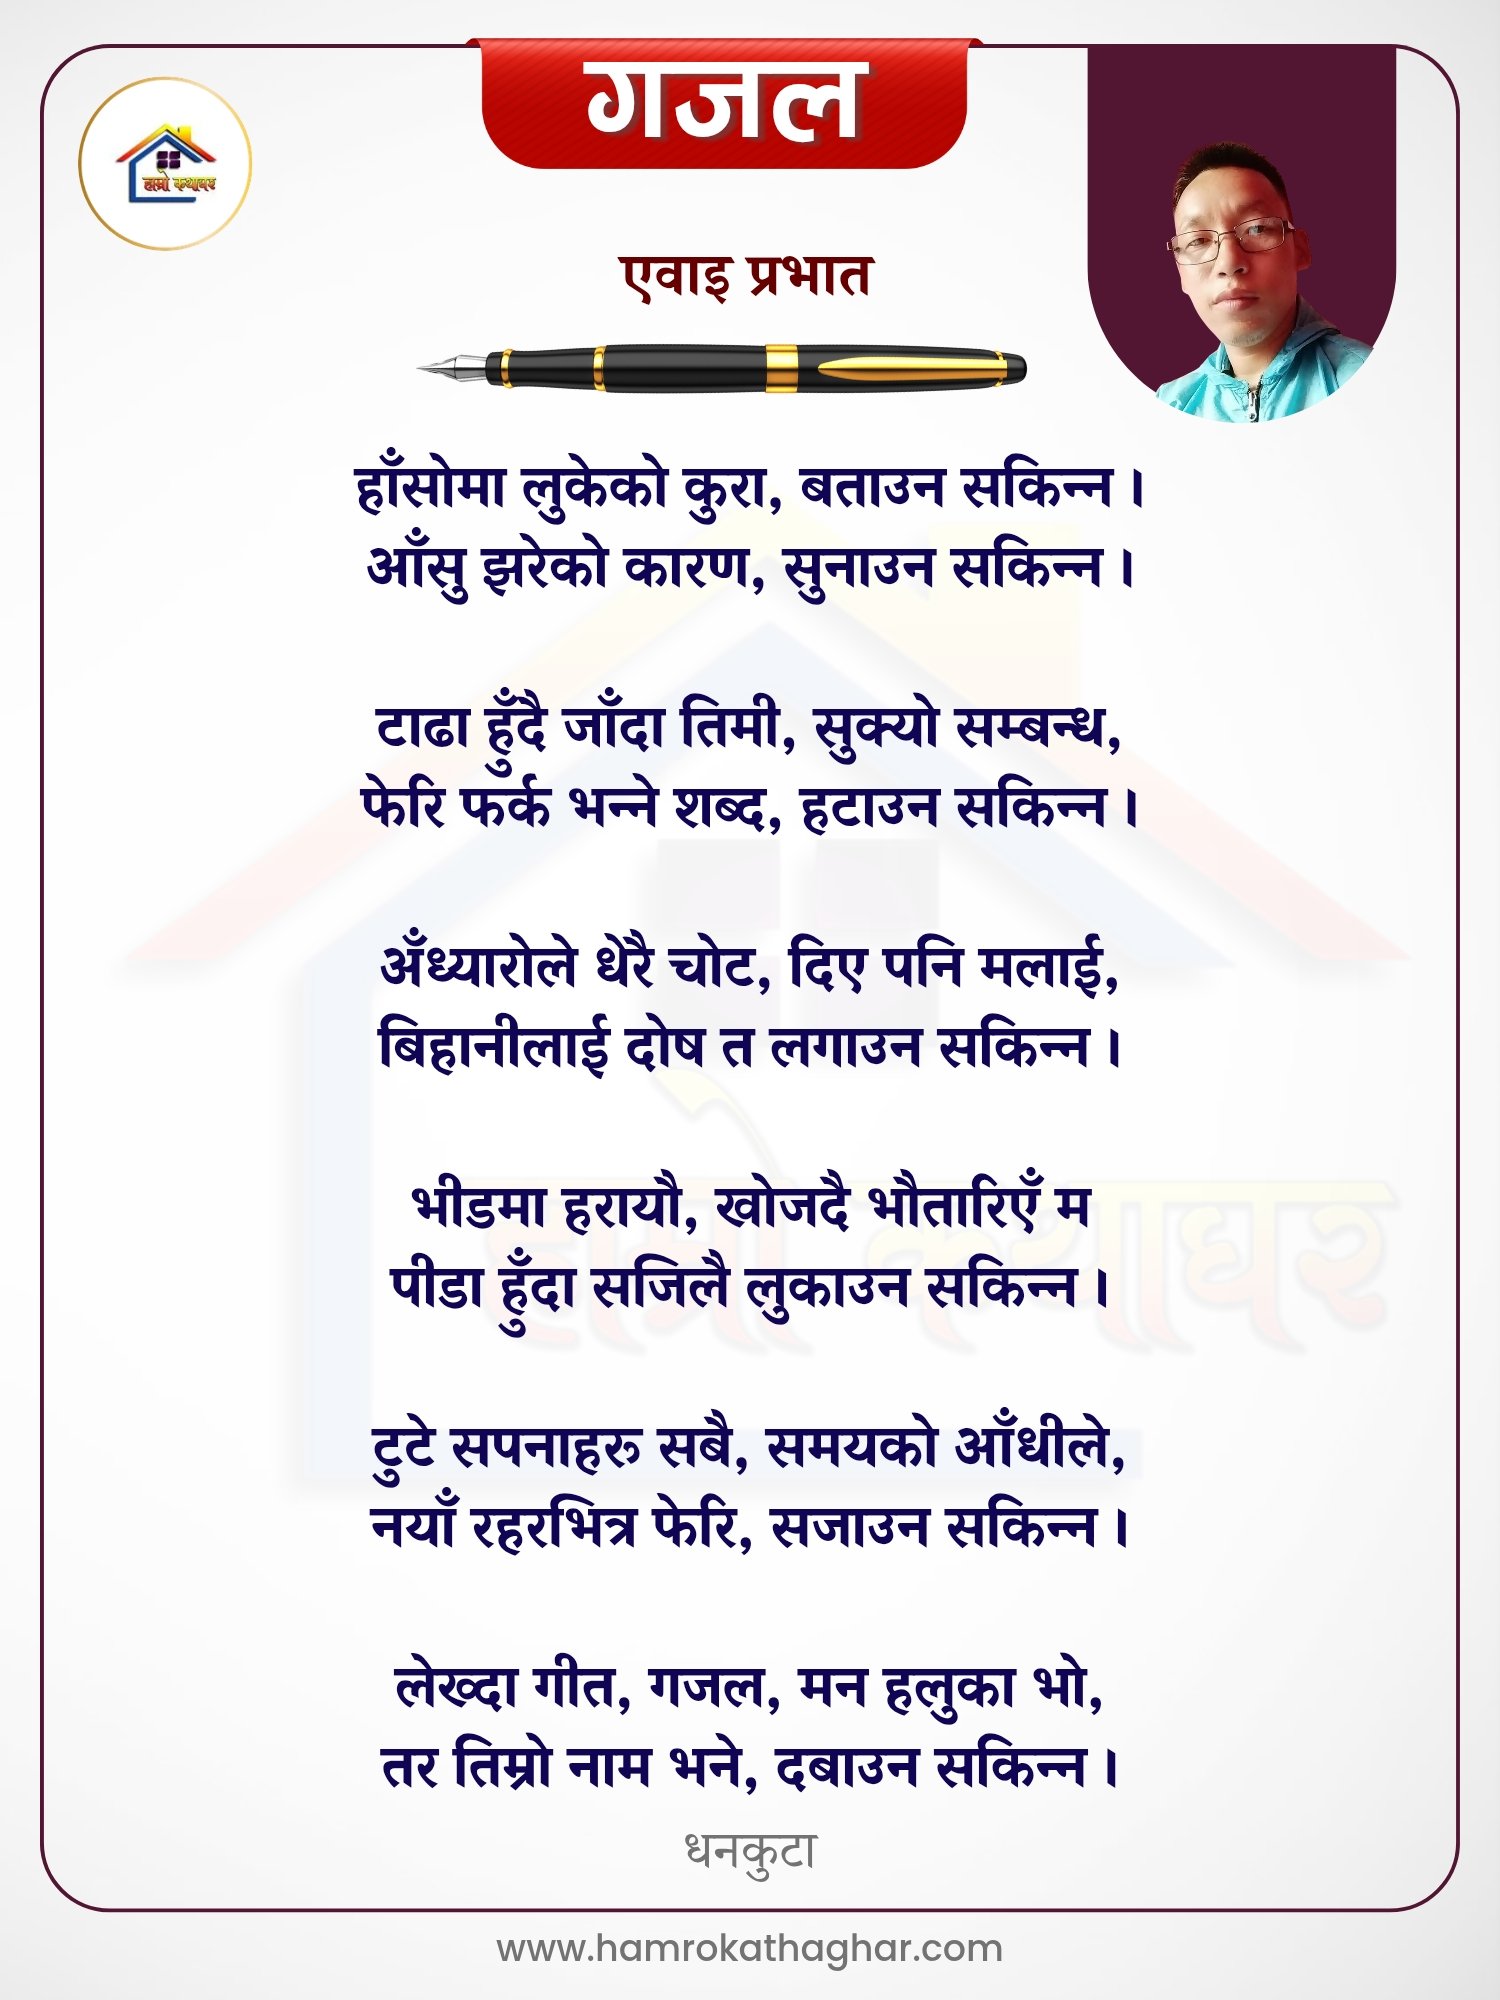 गजल
हाम्रो कथाघर
एवाइ प्रभात
हाँसोमा लुकेको कुरा, बताउन सकिन्न।
आँसु झरेको कारण, सुनाउन सकिन्न।
टाढा हुँदै जाँदा तिमी, सुक्यो सम्बन्ध,
फेरि फर्क भन्ने शब्द, हटाउन सकिन्न।
अँध्यारोले धेरै चोट, दिए पनि मलाई,
बिहानीलाई दोष त लगाउन सकिन्न।
भीडमा हरायौ, खोजदै भौतारिएँ म
पीडा हुँदा सजिलै लुकाउन सकिन्न।
टुटे सपनाहरु सबै, समयको आँधीले,
नयाँ रहरभित्र फेरि, सजाउन सकिन्न।
लेख्दा गीत, गजल, मन हलुका भो,
तर तिम्रो नाम भने, दबाउन सकिन्न।
धनकुटा
www.hamrokathaghar.com